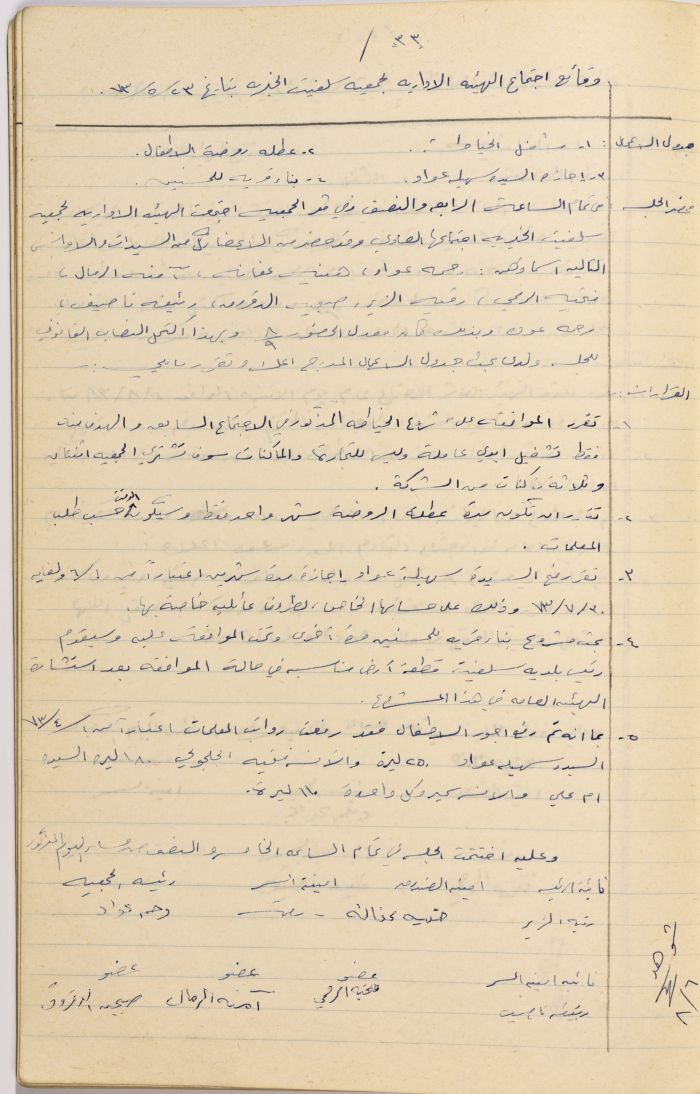 ٣٣
وقائع اجتماع الهيئه الاداريه لجمعيه سلفيت الخيريه بتاريخ ٢٣/٥/٧٣.
جدول الاعمال : ١- مشغل الخياطه . ٢- عطله روضة الاطفال.
٣- اجازه السيده سهيله عواد. ٤- بناء قريه للمسنين.
محضر الجلسه في تمام الساعه الرابعه والنصف وفي مقر الجمعيه اجتمعت الهيئه الاداريه لجمعيه
سلفيت الخيريه اجتماعها العادي وقد حضر من الاعضاء كل من السيدات والاوانس
التاليه اسماؤهن : رحمه عواد، عفانه، آمنه الرمال،
فتحيه الرمحي، رقيه الزير، صبحيه الدقروق، رئيفه ناصيف،
وبذلك كان معدل الحضور ٨/٩ وبهذا اكتمل النصاب القانوني
للجلسه ولدى بحث جدول الاعمال المدرج اعلاه تقرر ما يلي :-
القرارات :
١- تقرر الموافقه على مشروع الخياطه المذكور في الاجتماع السابق والهدف منه
فقط تشغيل ايدي عاملة وليس للتجارة والماكنات سوف تشتري الجمعيه اثنتان
وثلاثة ماكنات من الشركة.
٢- تقرر ان تكون مدة عطلة الروضة شهر واحد فقط وسيكون الوقت حسب طلب
المعلمات .
٣- تقرر منح السيدة سهيلة عواد اجازة مدة شهرين اعتباراً من ١/٦ ولغايه
٣٠/٧/٧٣ وذلك على حسابها الخاص، لظروف عائليه خاصة بها.
٤- بحث مشروع بناء قريه للمسنين مرة أخرى وتمت الموافقة عليه وسيقدم
رئيس بلديه سلفيت قطعة أرض مناسبه في حالة الموافقه بعد استشارة
الهيئه العامه في هذا المشروع.
٥- بما انه تم رفع اجور الاطفال فقد رفعت رواتب المعلمات اعتباراً من ١/٤/٧٣
السيده سهيله عواد ٢٥٠ ليرة والآنسه فتحيه ١٨٠ ليره السيده
ام علي والآنسه سميره كل واحدة ليرة.
وعليه اختتمت الجلسه في تمام الساعه الخامسه والنصف من مساء اليوم المذكور
نائبة الرئيسه امينه الصندوق امينة السر رئيسه الجمعيه
رقيه الزير عفانه رحمه عواد
نائبه امينه السر عضو عضو عضو
رئيفه ناصيف فتحيه الرمحي آمنه الرمال صبحيه الدقروق